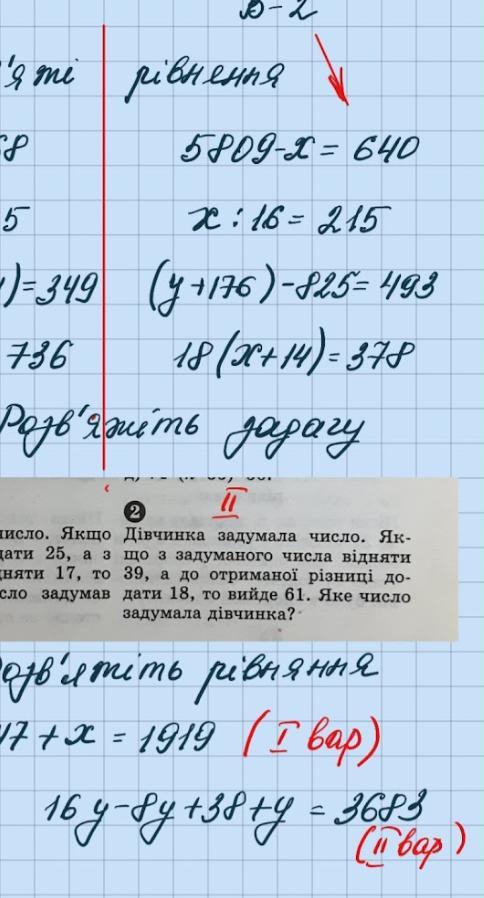 В-2
'яті рівнення
68 5809-x= 640
5 x:16= 215
)=349 (y+176)-825=493
736 18(x+14)=378
Розв'яжіть задачу
2 II
число. Якщо Дівчинка задумала число. Як-
дати 25, а з що з задуманого числа відняти
дняти 17, то 39, а до отриманої різниці до-
сло задумав дати 18, то вийде 61. Яке число
задумала дівчинка?
озв'яжіть рівняння
47+x=1919 (I вар)
16y-8y+38+y=3683
(II вар)